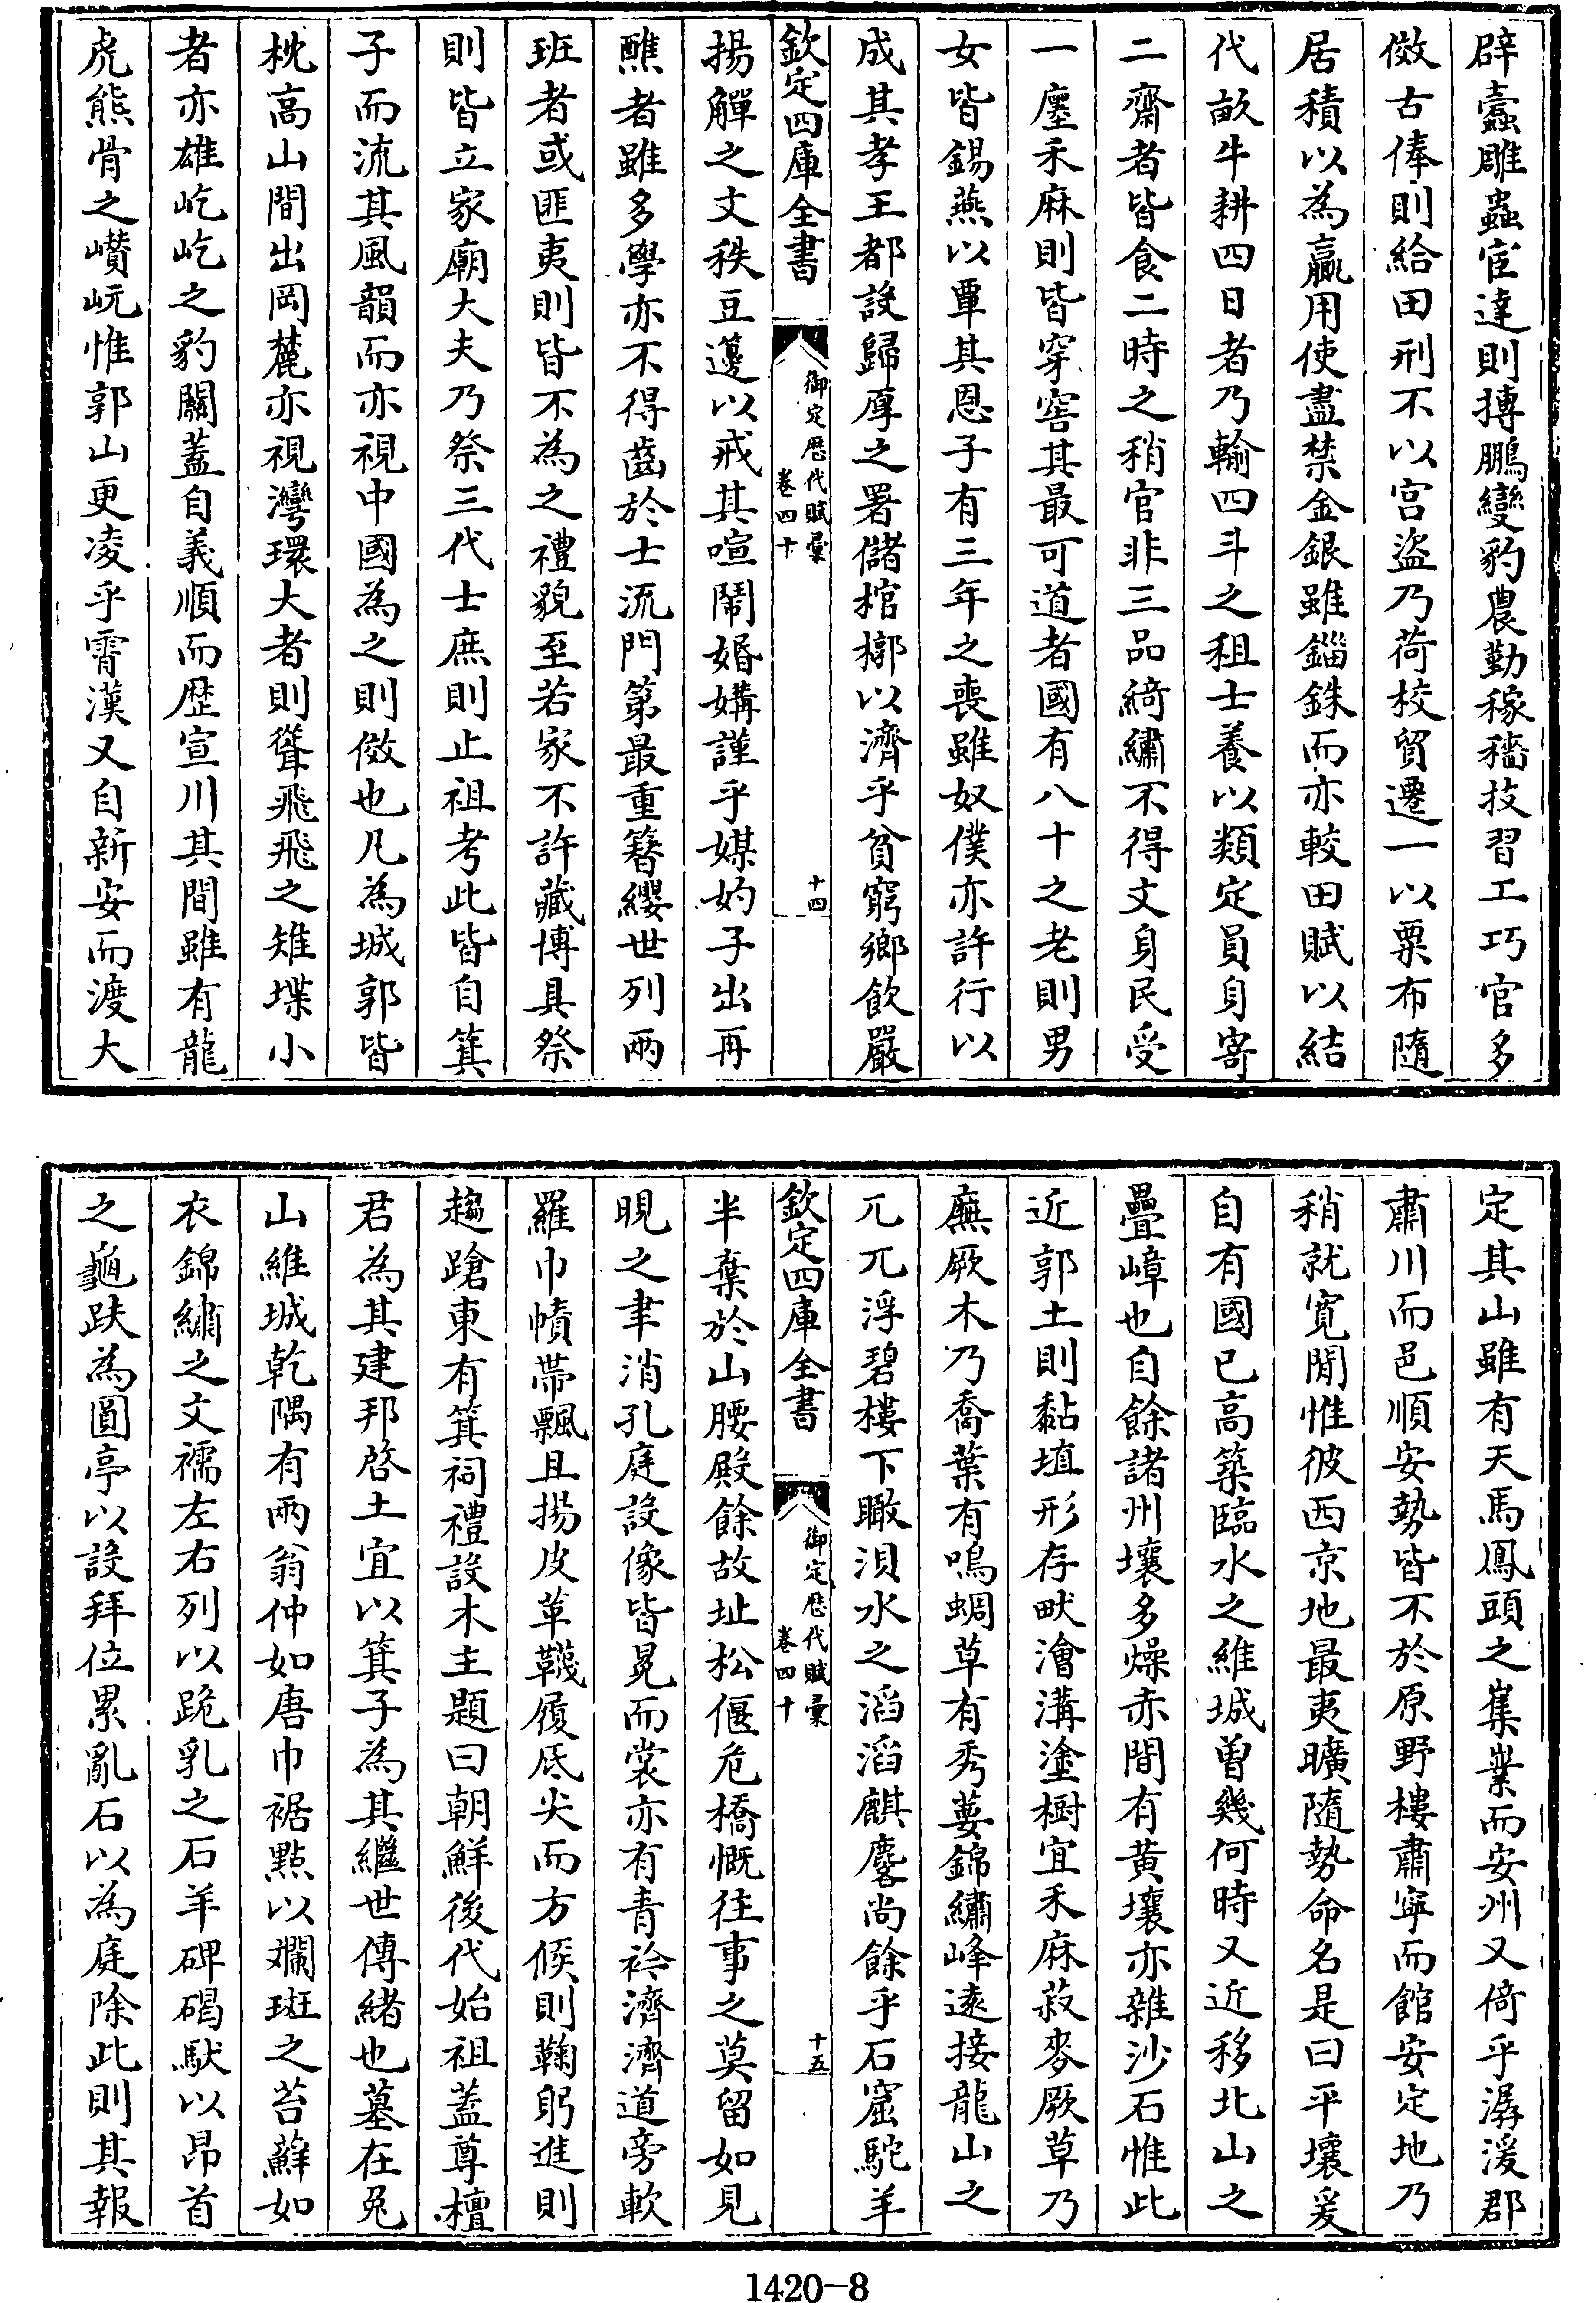 辟蠹雕蟲宦達則摶鵬變豹農勤稼穡技習工巧官多
倣古俸則給田刑不以宫盜乃荷校貿遷一以粟布隨
居積以為贏用使盡禁金銀雖錙銖而亦較田賦以結
代畝牛耕四日者乃輸四斗之租士養以類定員身寄
二齋者皆食二時之稍官非三品綺繡不得文身民受
一廛禾麻則皆穿窖其最可道者國有八十之老則男
女皆錫燕以覃其恩子有三年之喪雖奴僕亦許行以
成其孝王都設歸厚之署儲棺槨以濟乎貧窮鄉飲嚴
欽定四庫全書 御定歷代賦彙 卷四十 十四
揚觶之文秩豆籩以戒其喧鬧婚媾謹乎媒妁子出再
醮者雖多學亦不得齒於士流門第最重簪纓世列兩
班者或匪夷則皆不為之禮貌至若家不許藏博具祭
則皆立家廟大夫乃祭三代士庶則止祖考此皆自箕
子而流其風韻而亦視中國為之則倣也凡為城郭皆
枕高山間出岡麓亦視灣環大者則聳飛飛之雉堞小
者亦雄屹屹之豹關蓋自義順而歷宣川其間雖有龍
虎熊骨之巑岏惟郭山更凌乎霄漢又自新安而渡大
定其山雖有天馬鳳頭之嶲嶪而安州又倚乎潺湲郡
肅川而邑順安勢皆不於原野樓肅寧而館安定地乃
稍就寛閒惟彼西京地最夷曠隨勢命名是曰平壤爰
自有國已高築臨水之維城曽幾何時又近移北山之
疊嶂也自餘諸州壤多燥赤間有黄壤亦雜沙石惟此
近郭土則黏埴形存畎澮溝塗樹宜禾麻菽麥厥草乃
蕪厥木乃喬葉有鳴蜩草有秀葽錦繡峰遠接龍山之
兀兀浮碧樓下瞰浿水之滔滔麒麐尚餘乎石窟駝羊
欽定四庫全書 御定歷代賦彙 卷四十 十五
半棄於山腰殿餘故址松偃危橋慨往事之莫留如見
晛之聿消孔庭設像皆冕而裳亦有青衿濟濟道旁軟
羅巾幘帶飄且揚皮革韈履底尖而方候則鞠躬進則
趨蹌東有箕祠禮設木主題曰朝鮮後代始祖蓋尊檀
君為其建邦啓土宜以箕子為其繼世傳緒也墓在兔
山維城乾隅有兩翁仲如唐巾裾點以斕斑之苔蘚如
衣錦繡之文襦左右列以跪乳之石羊碑碣馱以昂首
之龜趺為圓亭以設拜位累亂石以為庭除此則其報
1420-8